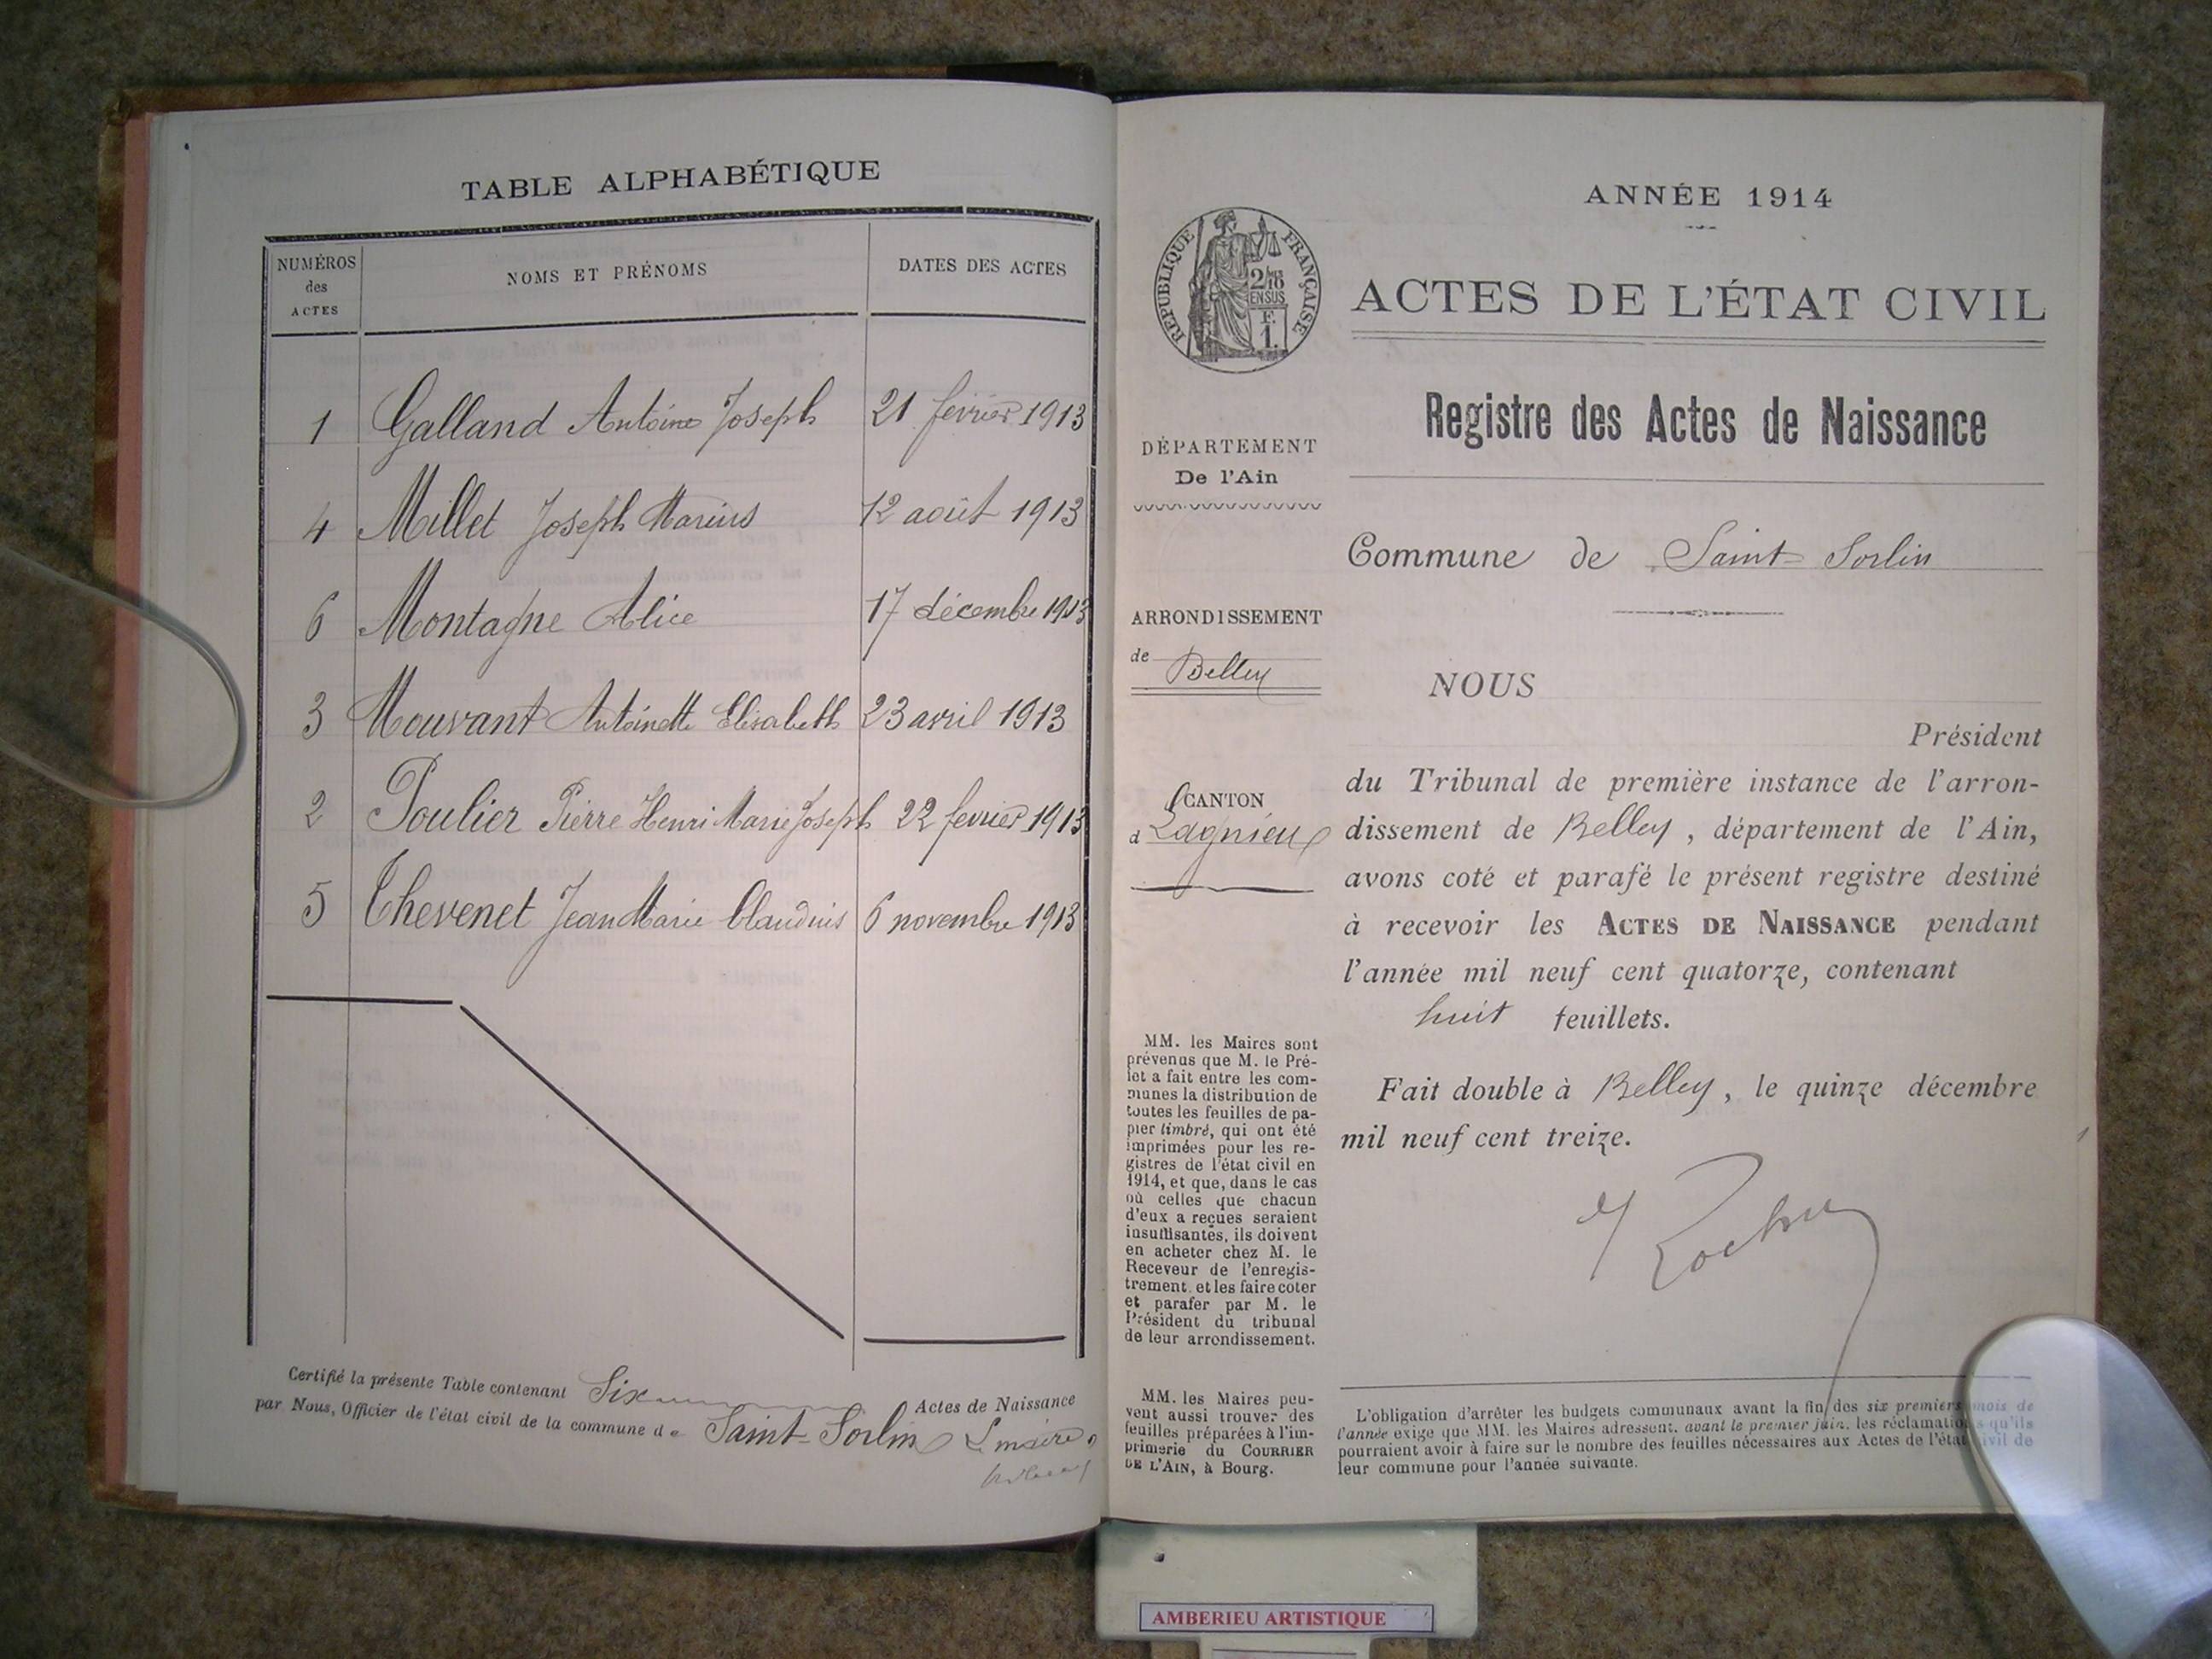 TABLE ALPHABÉTIQUE
NUMÉROS
des
ACTES
NOMS ET PRÉNOMS
DATES DES ACTES
1 Galland Antoine Joseph 21 février 1913
4 Millet Joseph Marius 12 août 1913
6 Montagne Alice 17 décembre 1913
3 Mouvant Antoinette Elisabeth 23 avril 1913
2 Poulier Pierre Henri Marie Joseph 22 fevrier 1913
5 Thevenet Jean Marie Claudius 6 novembre 1913
Certifié la présente Table contenant Six Actes de Naissance
par Nous, Officier de l'état civil de la commune de Saint-Sorlin
ANNÉE 1914
RÉPUBLIQUE FRANÇAISE
2/10
EN SUS
F.
1.
ACTES DE L'ÉTAT CIVIL
Registre des Actes de Naissance
DÉPARTEMENT
De l'Ain
Commune de Saint-Sorlin
ARRONDISSEMENT
de Belley
CANTON
d Lagnieu
NOUS
Président
du Tribunal de première instance de l'arron-
dissement de Belley, département de l'Ain,
avons coté et parafé le présent registre destiné
à recevoir les ACTES DE NAISSANCE pendant
l'année mil neuf cent quatorze, contenant
huit feuillets.
Fait double à Belley, le quinze décembre
mil neuf cent treize.
MM. les Maires sont
prévenus que M. le Pré-
fet a fait entre les com-
munes la distribution de
toutes les feuilles de pa-
pier timbré, qui ont été
imprimées pour les re-
gistres de l'état civil en
1914, et que, dans le cas
où celles que chacun
d'eux a reçues seraient
insuffisantes, ils doivent
en acheter chez M. le
Receveur de l'enregis-
trement, et les faire coter
et parafer par M. le
Président du tribunal
de leur arrondissement.
MM. les Maires peu-
vent aussi trouver des
feuilles préparées à l'im-
primerie du COURRIER
DE L'AIN, à Bourg.
L'obligation d'arrêter les budgets communaux avant la fin des six premiers mois de
l'année exige que MM. les Maires adressent, avant le premier juin, les réclamations qu'ils
pourraient avoir à faire sur le nombre des feuilles nécessaires aux Actes de l'état civil de
leur commune pour l'année suivante.
AMBERIEU ARTISTIQUE